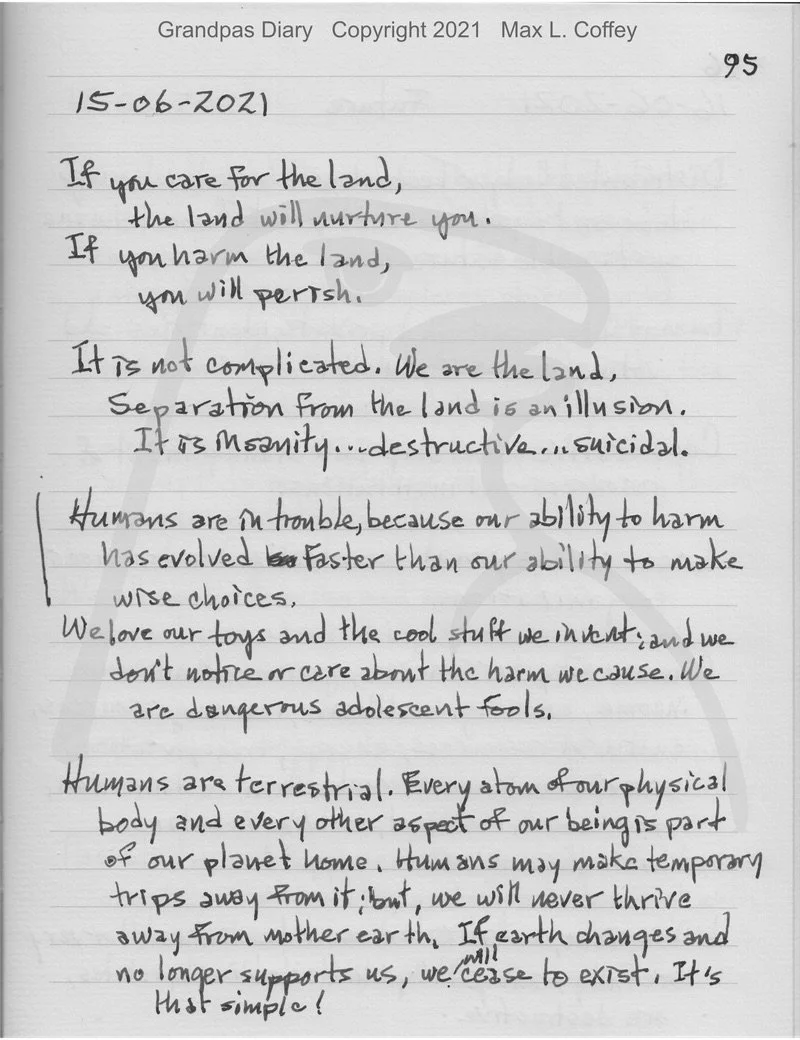 Grandpas Diary Copyright 2021 Max L. Coffey
95
15-06-2021
If you care for the land,
the land will nurture you.
If you harm the land,
you will perish.
It is not complicated. We are the land,
Separation from the land is an illusion.
It is insanity...destructive...suicidal.
Humans are in trouble, because our ability to harm
has evolved faster than our ability to make
wise choices.
We love our toys and the cool stuff we invent; and we
don't notice or care about the harm we cause. We
are dangerous adolescent fools.
Humans are terrestrial. Every atom of our physical
body and every other aspect of our being is part
of our planet home. Humans may make temporary
trips away from it; but, we will never thrive
away from mother earth. If earth changes and
no longer supports us, we will cease to exist. It's
that simple!